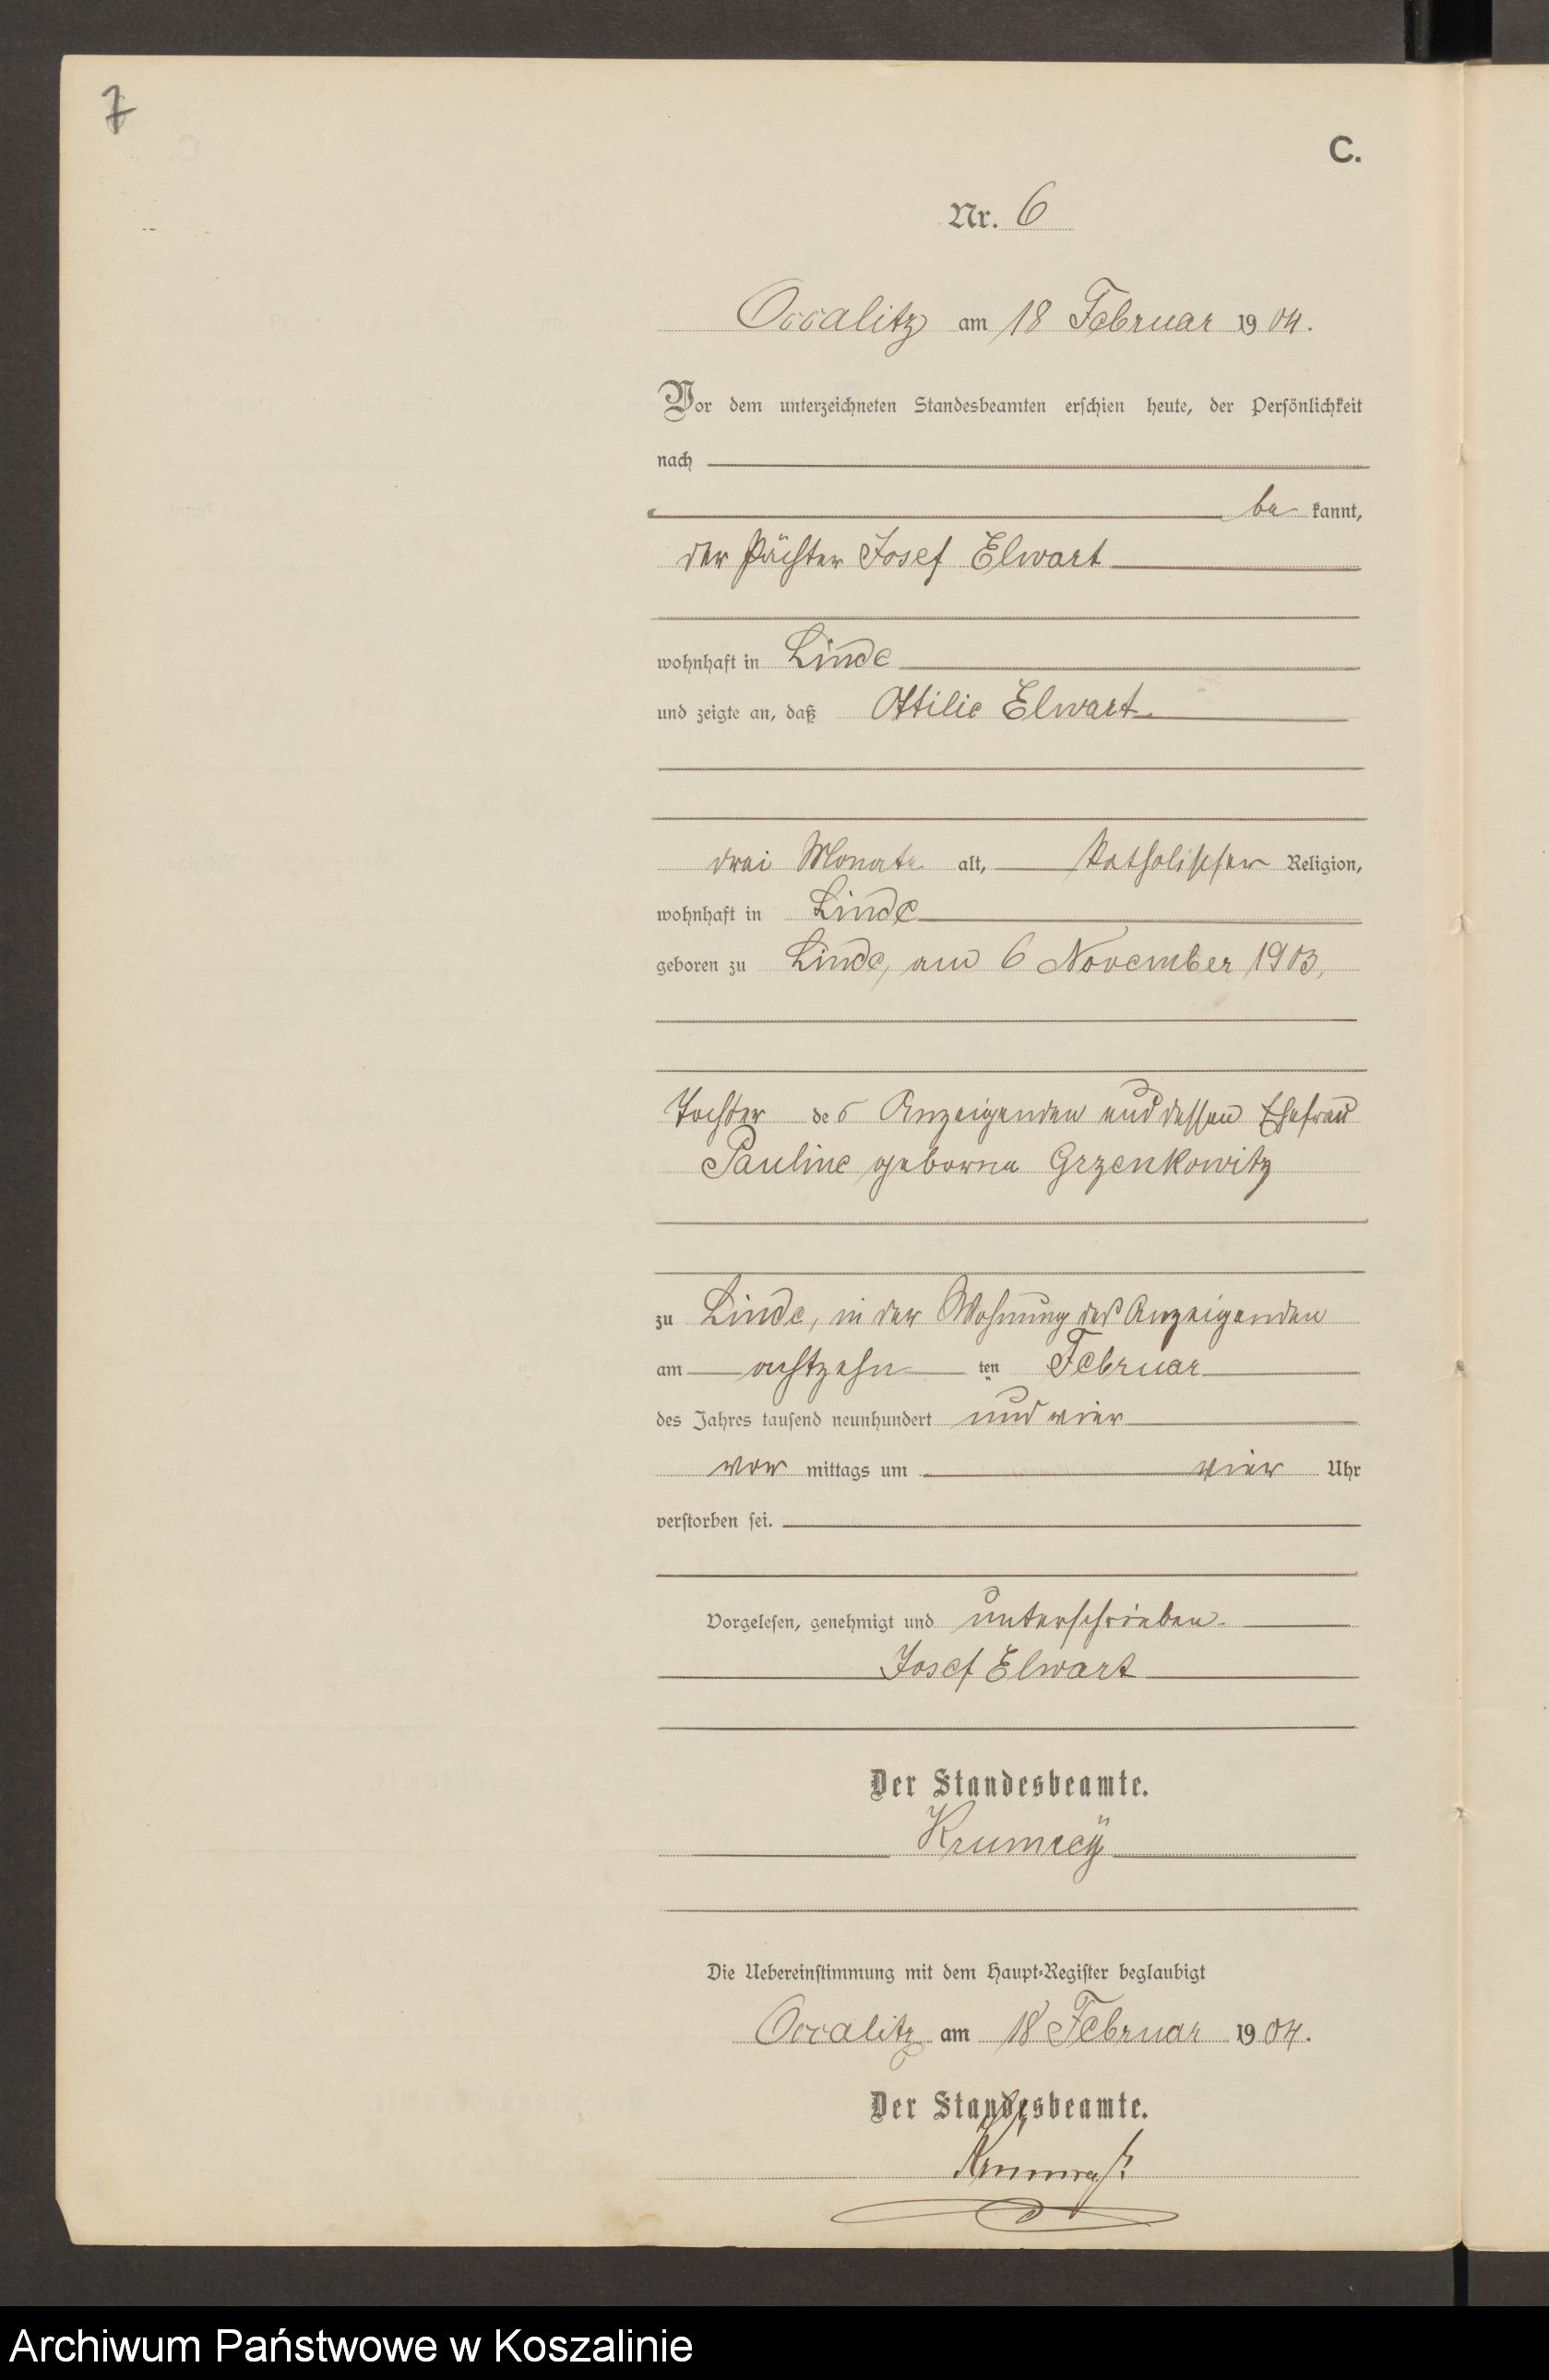 7
C.
Nr. 6
Occalitz am 18 Februar 1904.
Vor dem unterzeichneten Standesbeamten erschien heute, der Persönlichkeit
nach
be kannt,
der Pächter Josef Elwart
wohnhaft in Linde
und zeigte an, daß Ottilie Elwart
drei Monate alt, katholischer Religion,
wohnhaft in Linde
geboren zu Linde, am 6 November 1903,
Tochter des Anzeigenden und dessen Ehefrau
Pauline geborne Grzenkowitz
zu Linde, in der Wohnung des Anzeigenden
am achtzehn ten Februar
des Jahres tausend neunhundert und vier
vor mittags um vier Uhr
verstorben sei.
Vorgelesen, genehmigt und unterschrieben.
Josef Elwart
Der Standesbeamte.
Krumreÿ
Die Uebereinstimmung mit dem Haupt-Register beglaubigt
Occalitz am 18 Februar 1904.
Der Standesbeamte.
Archiwum Państwowe w Koszalinie